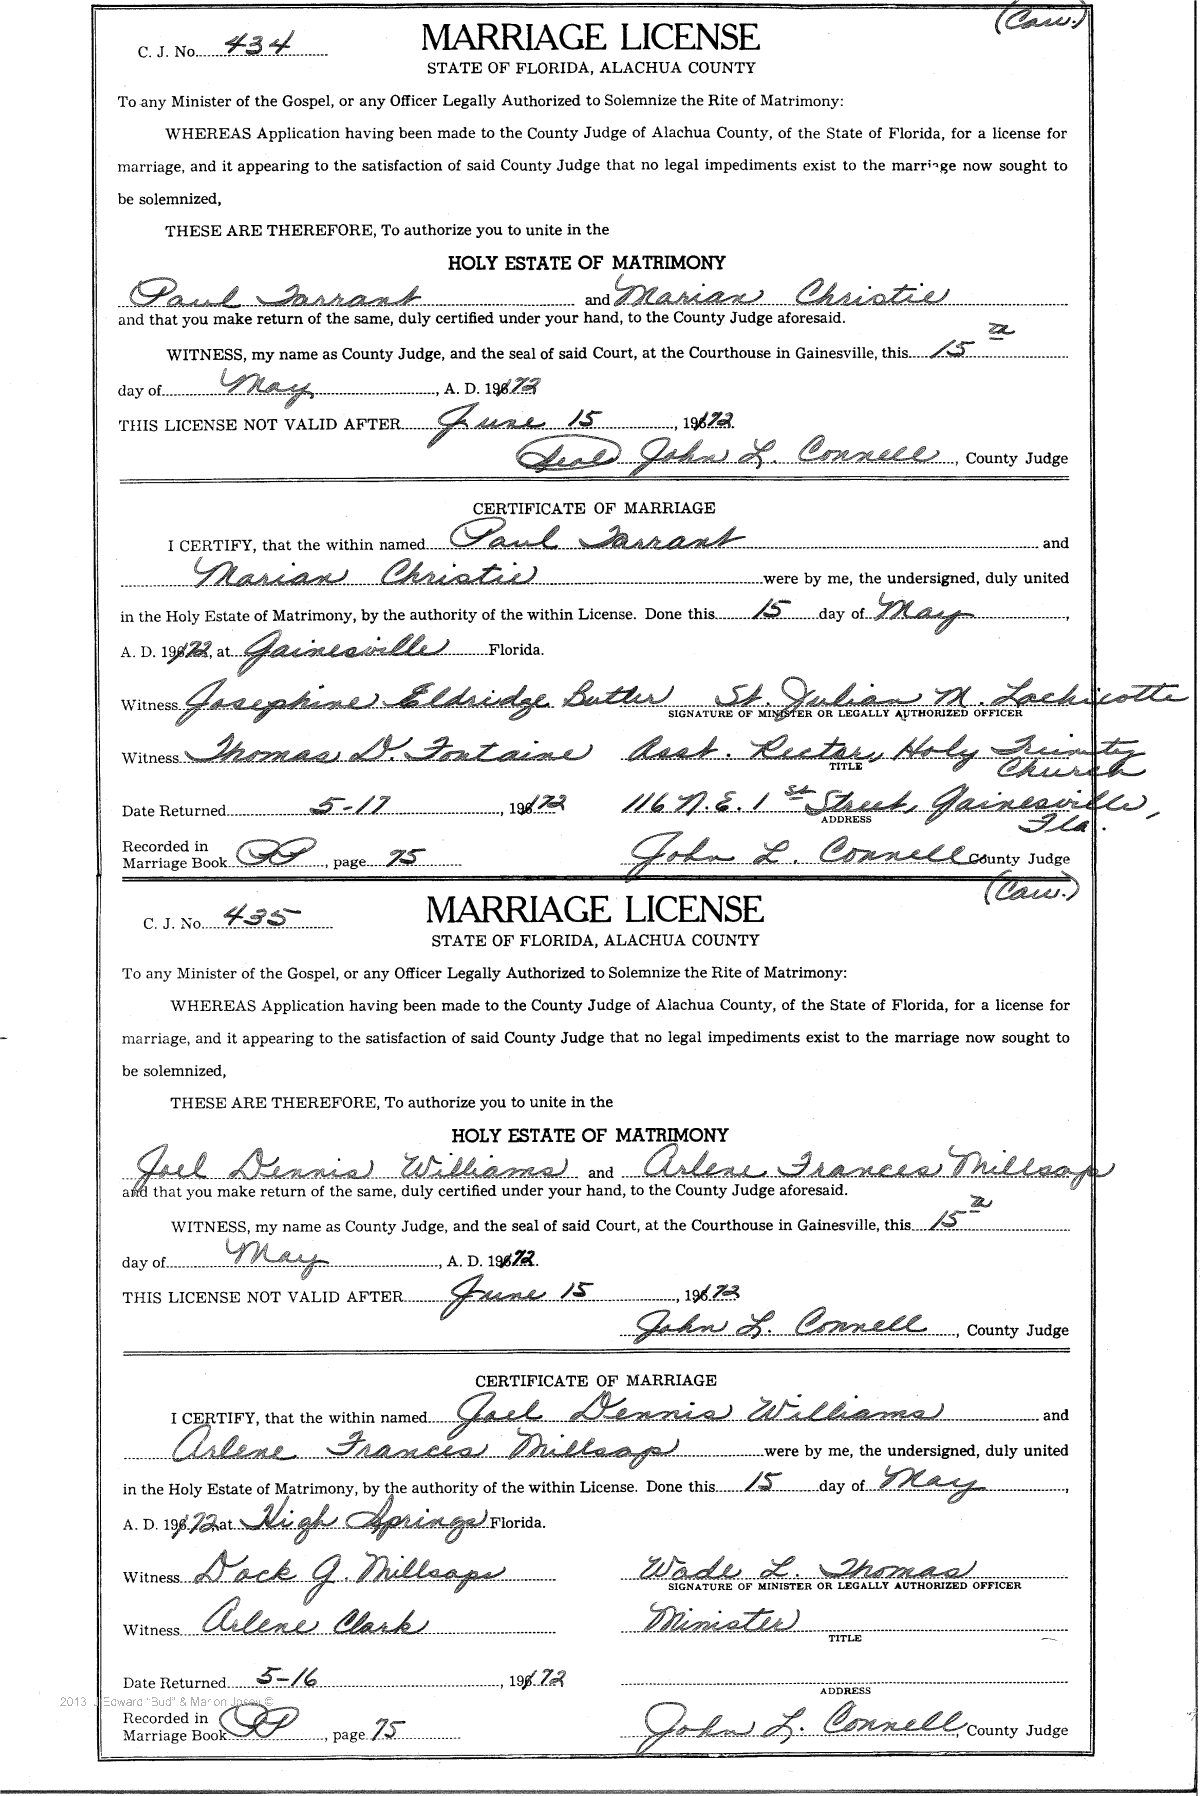 (Cau.)
C. J. No. 434
MARRIAGE LICENSE
STATE OF FLORIDA, ALACHUA COUNTY
To any Minister of the Gospel, or any Officer Legally Authorized to Solemnize the Rite of Matrimony:
WHEREAS Application having been made to the County Judge of Alachua County, of the State of Florida, for a license for
marriage, and it appearing to the satisfaction of said County Judge that no legal impediments exist to the marriage now sought to
be solemnized,
THESE ARE THEREFORE, To authorize you to unite in the
HOLY ESTATE OF MATRIMONY
Paul Tarrant and Marian Christie
and that you make return of the same, duly certified under your hand, to the County Judge aforesaid.
WITNESS, my name as County Judge, and the seal of said Court, at the Courthouse in Gainesville, this 15th
day of May, A. D. 1972
THIS LICENSE NOT VALID AFTER June 15, 1972.
(Seal) John L. Connell, County Judge
CERTIFICATE OF MARRIAGE
I CERTIFY, that the within named Paul Tarrant and
Marian Christie were by me, the undersigned, duly united
in the Holy Estate of Matrimony, by the authority of the within License. Done this 15 day of May,
A. D. 1972, at Gainesville Florida.
Witness Josephine Eldridge Butler St. Julian M. Lachicotte
SIGNATURE OF MINISTER OR LEGALLY AUTHORIZED OFFICER
Witness Thomas D. Fontaine Asst. Rector, Holy Trinity
Church
TITLE
Date Returned 5-17, 1972 116 N.E. 1st Street, Gainesville,
Fla.
ADDRESS
Recorded in
Marriage Book, page 75 John L. Connell County Judge
(Cau.)
C. J. No. 435
MARRIAGE LICENSE
STATE OF FLORIDA, ALACHUA COUNTY
To any Minister of the Gospel, or any Officer Legally Authorized to Solemnize the Rite of Matrimony:
WHEREAS Application having been made to the County Judge of Alachua County, of the State of Florida, for a license for
marriage, and it appearing to the satisfaction of said County Judge that no legal impediments exist to the marriage now sought to
be solemnized,
THESE ARE THEREFORE, To authorize you to unite in the
HOLY ESTATE OF MATRIMONY
Joel Dennis Williams and Arlene Frances Millsap
and that you make return of the same, duly certified under your hand, to the County Judge aforesaid.
WITNESS, my name as County Judge, and the seal of said Court, at the Courthouse in Gainesville, this 15th
day of May, A. D. 1972.
THIS LICENSE NOT VALID AFTER June 15, 1972
John L. Connell, County Judge
CERTIFICATE OF MARRIAGE
I CERTIFY, that the within named Joel Dennis Williams and
Arlene Frances Millsap were by me, the undersigned, duly united
in the Holy Estate of Matrimony, by the authority of the within License. Done this 15 day of May,
A. D. 1972 at High Springs Florida.
Witness Dock G. Millsaps Wade L. Thomas
SIGNATURE OF MINISTER OR LEGALLY AUTHORIZED OFFICER
Witness Arlene Clark Minister
TITLE
Date Returned 5-16, 1972
ADDRESS
2013 J Edward "Bud" & Marion Josey ©
Recorded in
Marriage Book, page 75 John L. Connell, County Judge